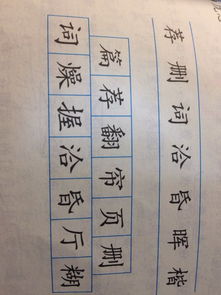 荐删词洽昏晖楷
篇荐翻帘页删
词燥握洽昏厅糊